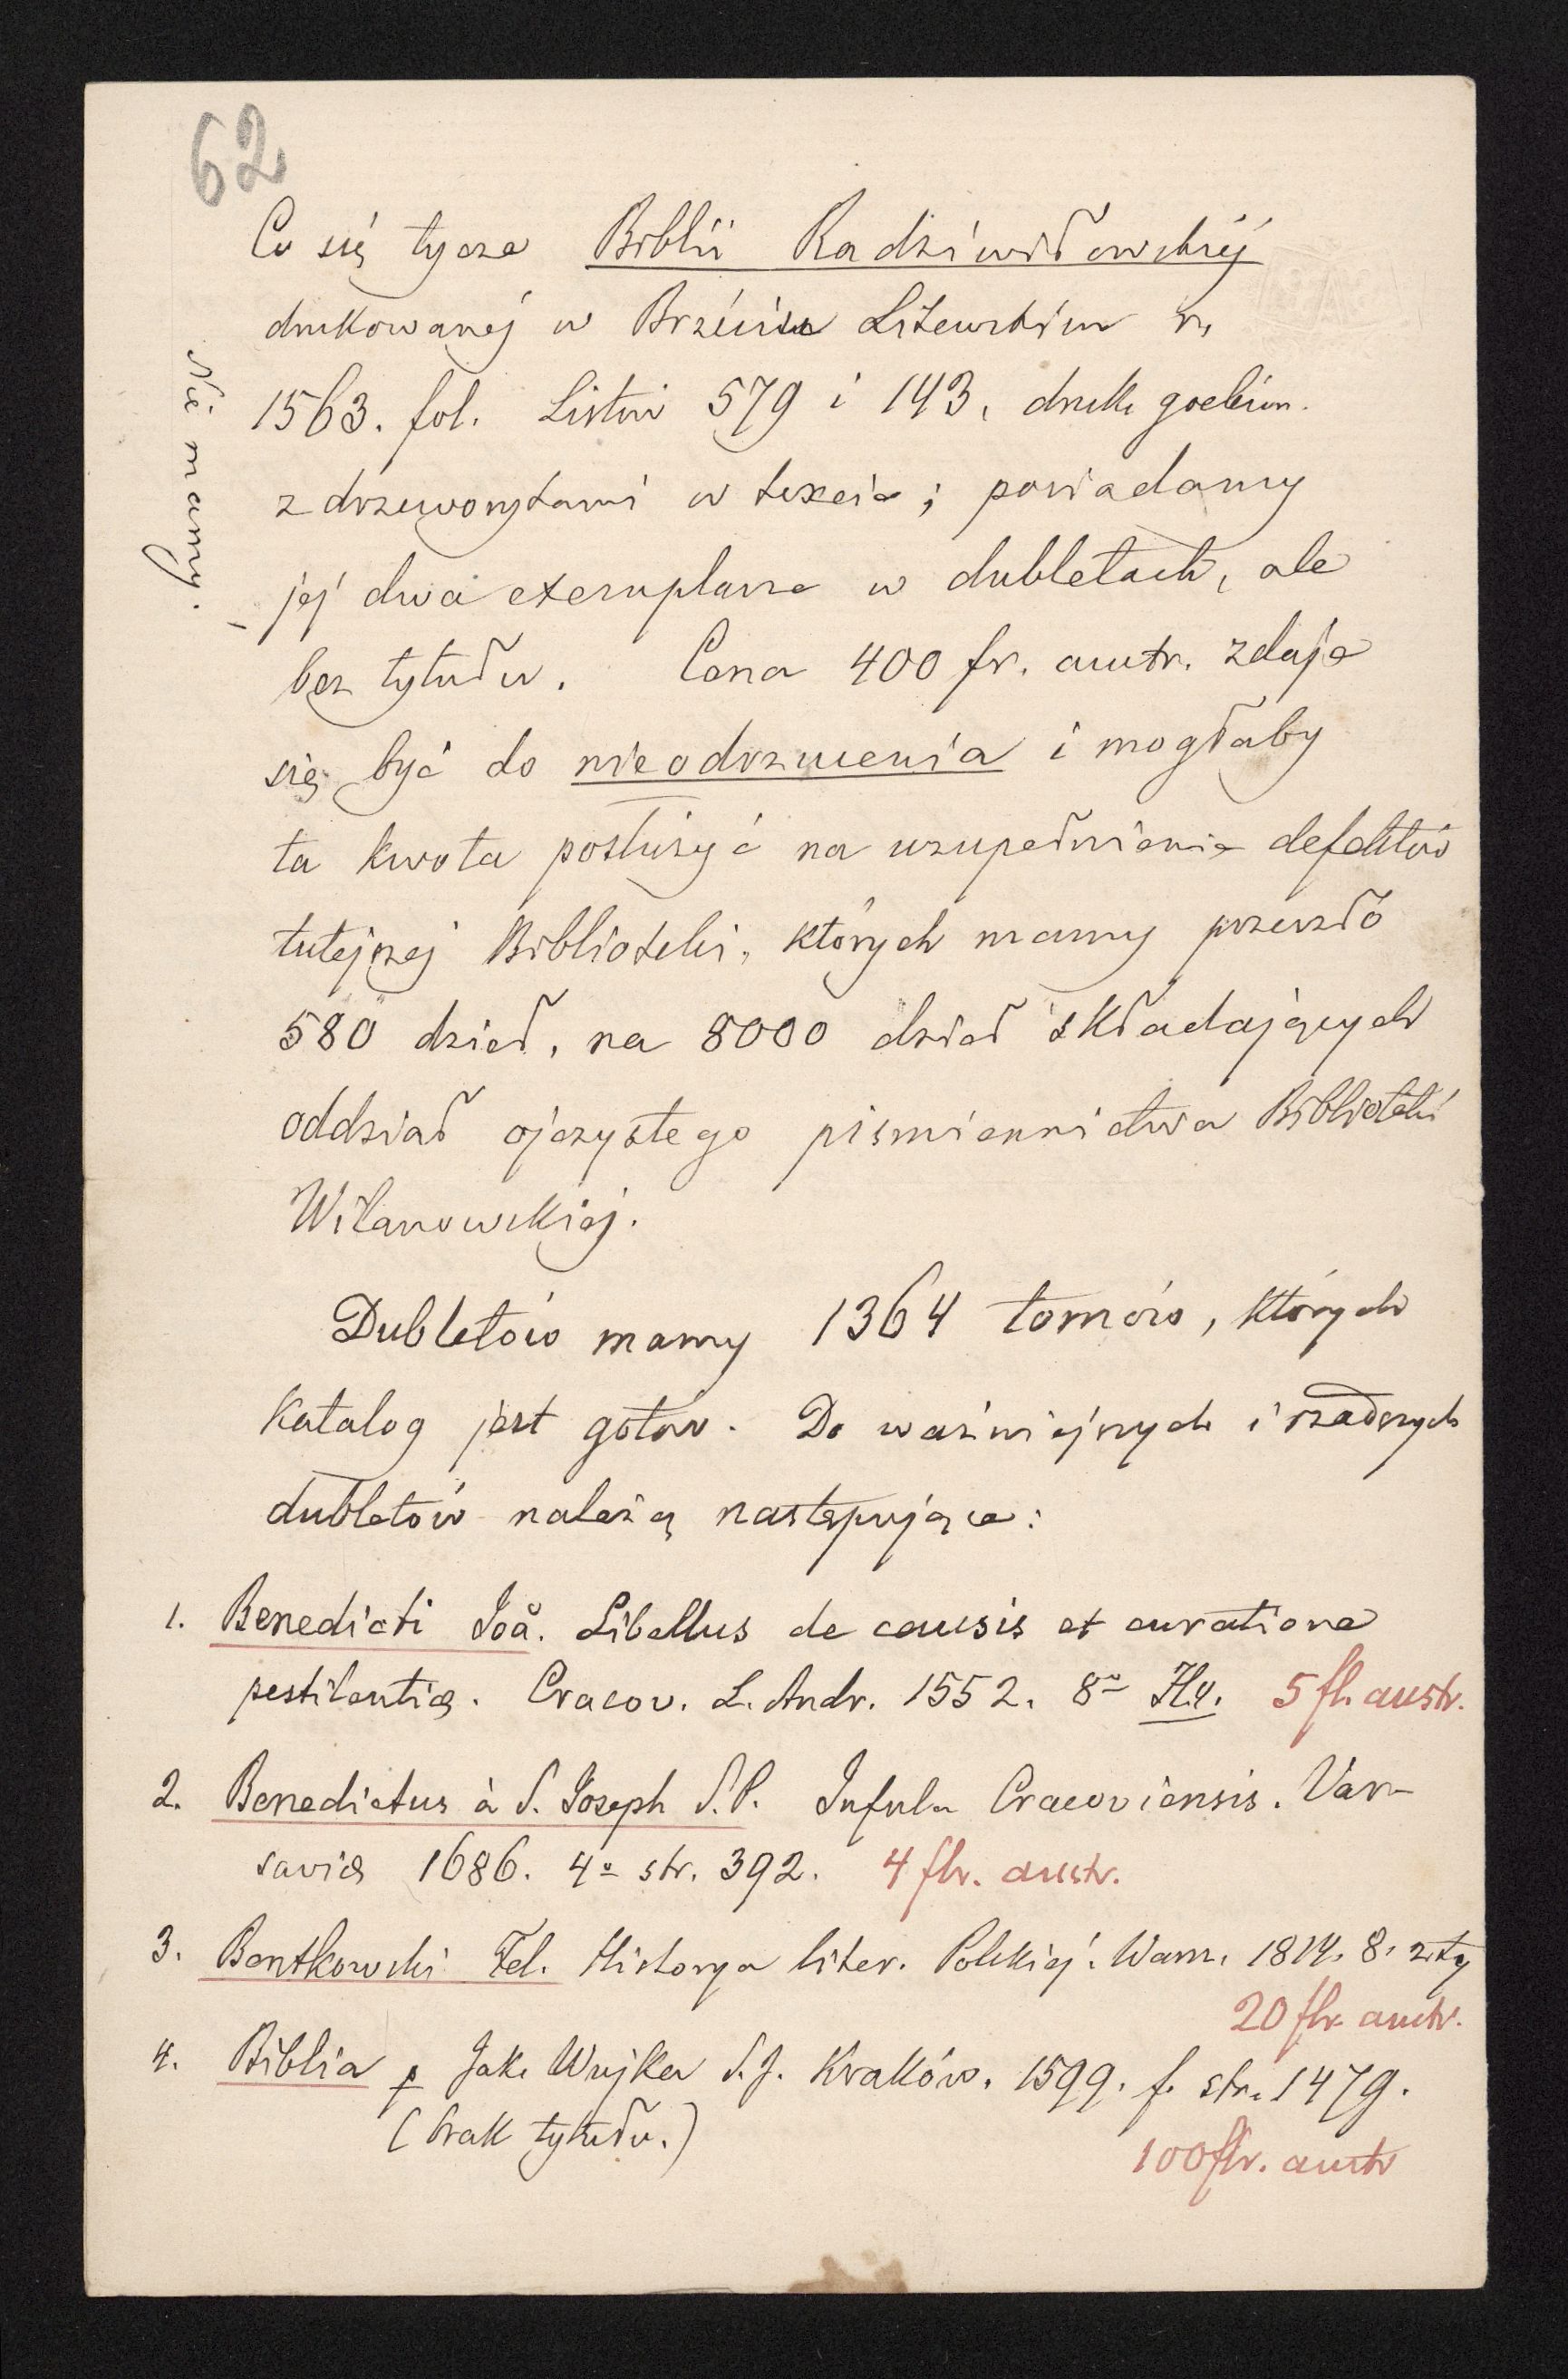 62
Co się tycze Biblii Radziwiłłowskiéj
drukowanéj w Brześciu Litewskim r.
1563. fol. Listów 579 i 143, druk. gockim.
z drzeworytami w texcie; posiadamy
jej dwa exemplarze w dubletach, ale
bez tytułu. Cena 400 fr. austr. zdaje
się być do nieodrzucenia i mogłaby
ta kwota posłużyć na uzupełnienie defektów
tutejszej Biblioteki, których mamy przeszło
580 dzieł, na 8000 dzieł składających
oddział ojczystego piśmiennictwa Biblioteki
Wilanowskiéj.
Nie mamy.
Dubletów mamy 1364 tomów, których
Katalog jest gotów. Do ważniejszych i rzadszych
dubletów należą następujące:
1. Benedicti Joă. Libellus de causis et curatione
pestilentiæ. Cracov. L. Andr. 1552. 8º H4. 5 fl. austr.
2. Benedictus à S. Joseph S.P. Infula Cracoviensis. Var-
saviæ 1686. 4º str. 392. 4 flr. austr.
3. Bentkowski Fel. Historya liter. Polskiéj. Warsz. 1814. 8. 2 ty
20 flr. austr.
4. Biblia p Jak. Wujka S.J. Kraków. 1599. f. str. 1479.
(brak tytułu.)
100 flr. austr